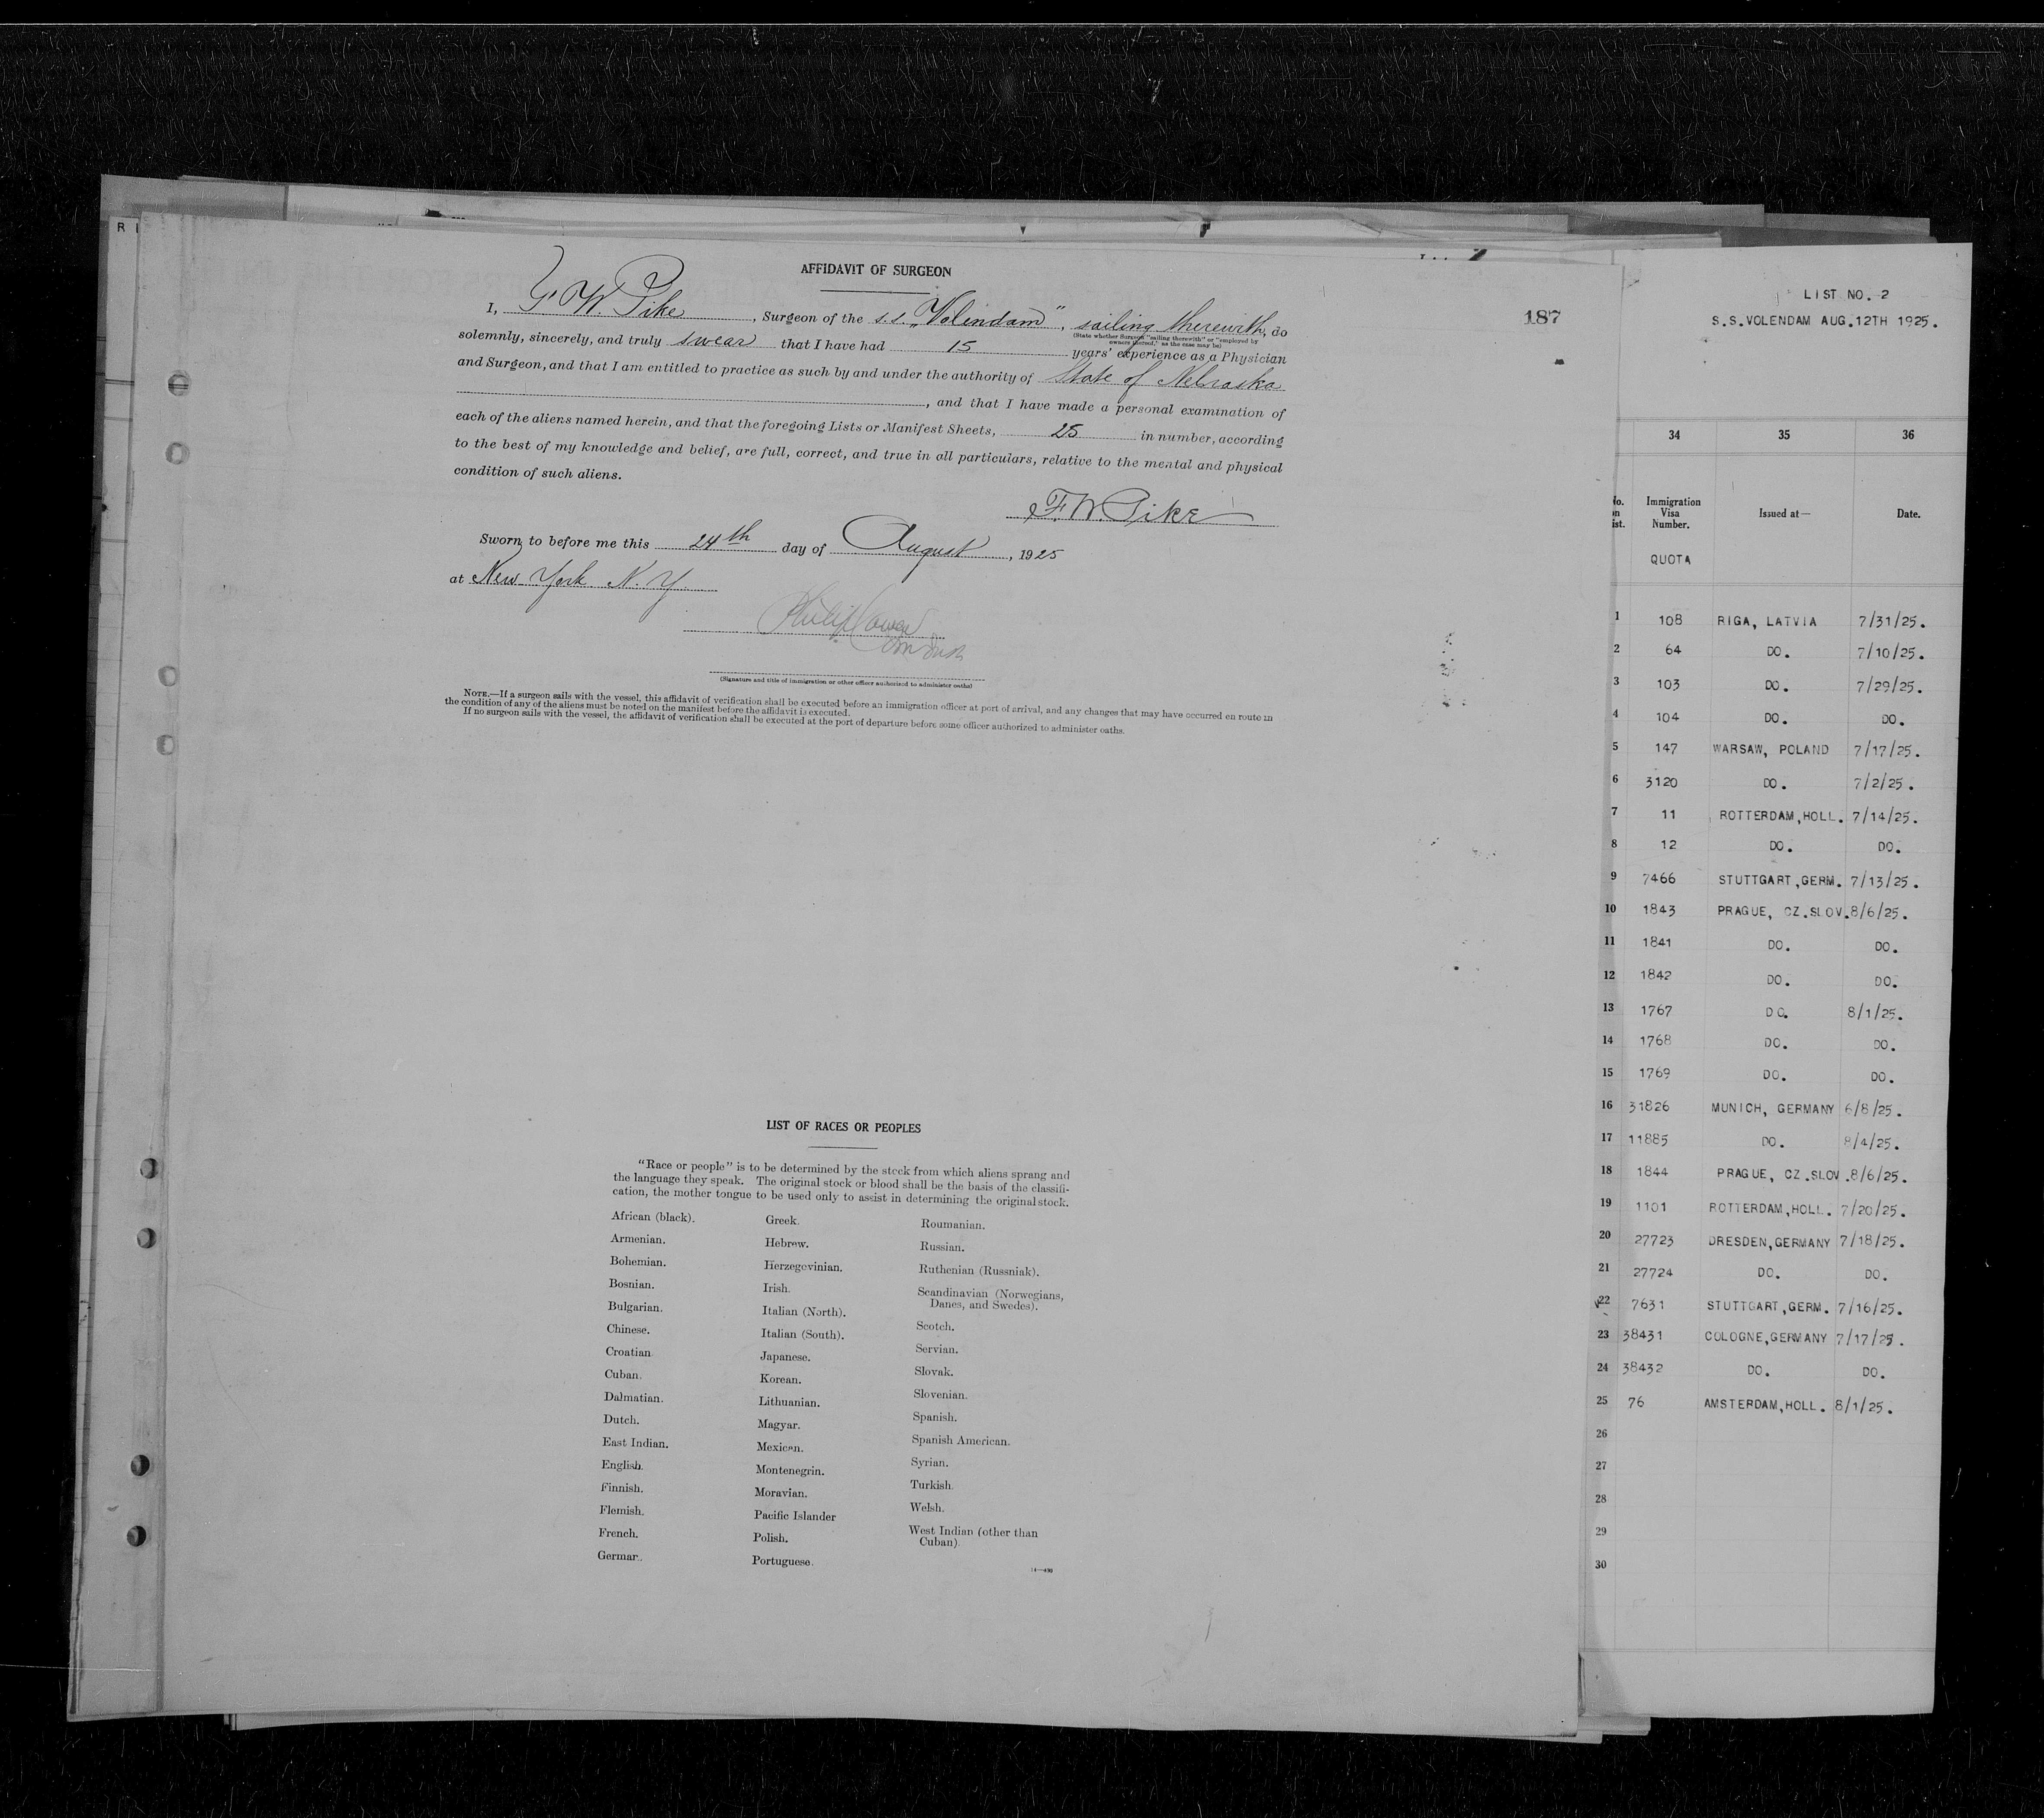 AFFIDAVIT OF SURGEON
I, F. W. Pike, Surgeon of the s.s. „Volendam", sailing therewith, do
(State whether Surgeon "sailing therewith" or "employed by
owners thereof," as the case may be)
solemnly, sincerely, and truly swear that I have had 15 years' experience as a Physician
and Surgeon, and that I am entitled to practice as such by and under the authority of State of Nebraska
, and that I have made a personal examination of
each of the aliens named herein, and that the foregoing Lists or Manifest Sheets, 25 in number, according
to the best of my knowledge and belief, are full, correct, and true in all particulars, relative to the mental and physical
condition of such aliens.
F. W. Pike
Sworn to before me this 24th day of August, 1925
at New York N.Y.
Philip
(Signature and title of immigration or other officer authorized to administer oaths)
NOTE.—If a surgeon sails with the vessel, this affidavit of verification shall be executed before an immigration officer at port of arrival, and any changes that may have occurred en route in
the condition of any of the aliens must be noted on the manifest before the affidavit is executed.
If no surgeon sails with the vessel, the affidavit of verification shall be executed at the port of departure before some officer authorized to administer oaths.
LIST OF RACES OR PEOPLES
"Race or people" is to be determined by the stock from which aliens sprang and
the language they speak. The original stock or blood shall be the basis of the classifi-
cation, the mother tongue to be used only to assist in determining the original stock.
African (black).
Armenian.
Bohemian.
Bosnian.
Bulgarian.
Chinese.
Croatian
Cuban.
Dalmatian.
Dutch.
East Indian.
English.
Finnish.
Flemish.
French.
German.
Greek.
Hebrew.
Herzegovinian.
Irish.
Italian (North).
Italian (South).
Japanese.
Korean.
Lithuanian.
Magyar.
Mexican.
Montenegrin.
Moravian.
Pacific Islander
Polish.
Portuguese.
Roumanian.
Russian.
Ruthenian (Russniak).
Scandinavian (Norwegians,
Danes, and Swedes).
Scotch.
Servian.
Slovak.
Slovenian.
Spanish.
Spanish American.
Syrian.
Turkish.
Welsh.
West Indian (other than
Cuban).
187
LIST NO. 2
S.S.VOLENDAM AUG.12TH 1925.
34 35 36
Immigration
Visa
Number.
Issued at—
Date.
QUOTA
1 108 RIGA, LATVIA 7/31/25.
2 64 DO. 7/10/25.
3 103 DO. 7/29/25.
4 104 DO. DO.
5 147 WARSAW, POLAND 7/17/25.
6 3120 DO. 7/2/25.
7 11 ROTTERDAM,HOLL. 7/14/25.
8 12 DO. DO.
9 7466 STUTTGART,GERM. 7/13/25.
10 1843 PRAGUE, CZ.SLOV. 8/6/25.
11 1841 DO. DO.
12 1842 DO. DO.
13 1767 DO. 8/1/25.
14 1768 DO. DO.
15 1769 DO. DO.
16 31826 MUNICH, GERMANY 6/8/25.
17 11885 DO. 8/4/25.
18 1844 PRAGUE, CZ.SLOV. 8/6/25.
19 1101 ROTTERDAM,HOLL. 7/20/25.
20 27723 DRESDEN,GERMANY 7/18/25.
21 27724 DO. DO.
22 7631 STUTTGART,GERM. 7/16/25.
23 38431 COLOGNE,GERMANY 7/17/25.
24 38432 DO. DO.
25 76 AMSTERDAM,HOLL. 8/1/25.
26
27
28
29
30